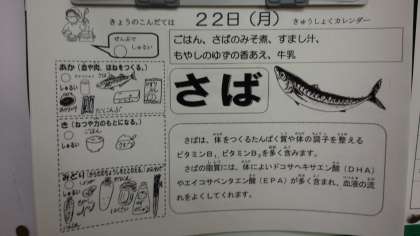 きょうのこんだては
22日(月)
きゅうしょくカレンダー
ぜんぶで
しゅるい
ごはん、さばのみそ煮、すまし汁、
もやしのゆずの香あえ、牛乳
あか(血や肉、ほねをつくる。)
しゅるい
さば
き(ねつや力のもとになる。)
しゅるい
ごはん
みどり
しゅるい
さばは、体をつくるたんぱく質や体の調子を整える
ビタミンB₁、ビタミンB₂を多く含みます。
さばの脂質には、体によいドコサヘキサエン酸(DHA)
やエイコサペンタエン酸(EPA)が多く含まれ、血液の流
れをよくしてくれます。